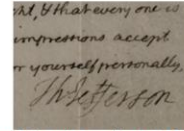 ht, & that every one is
impressions accept
r yourself personally,
Th Jefferson